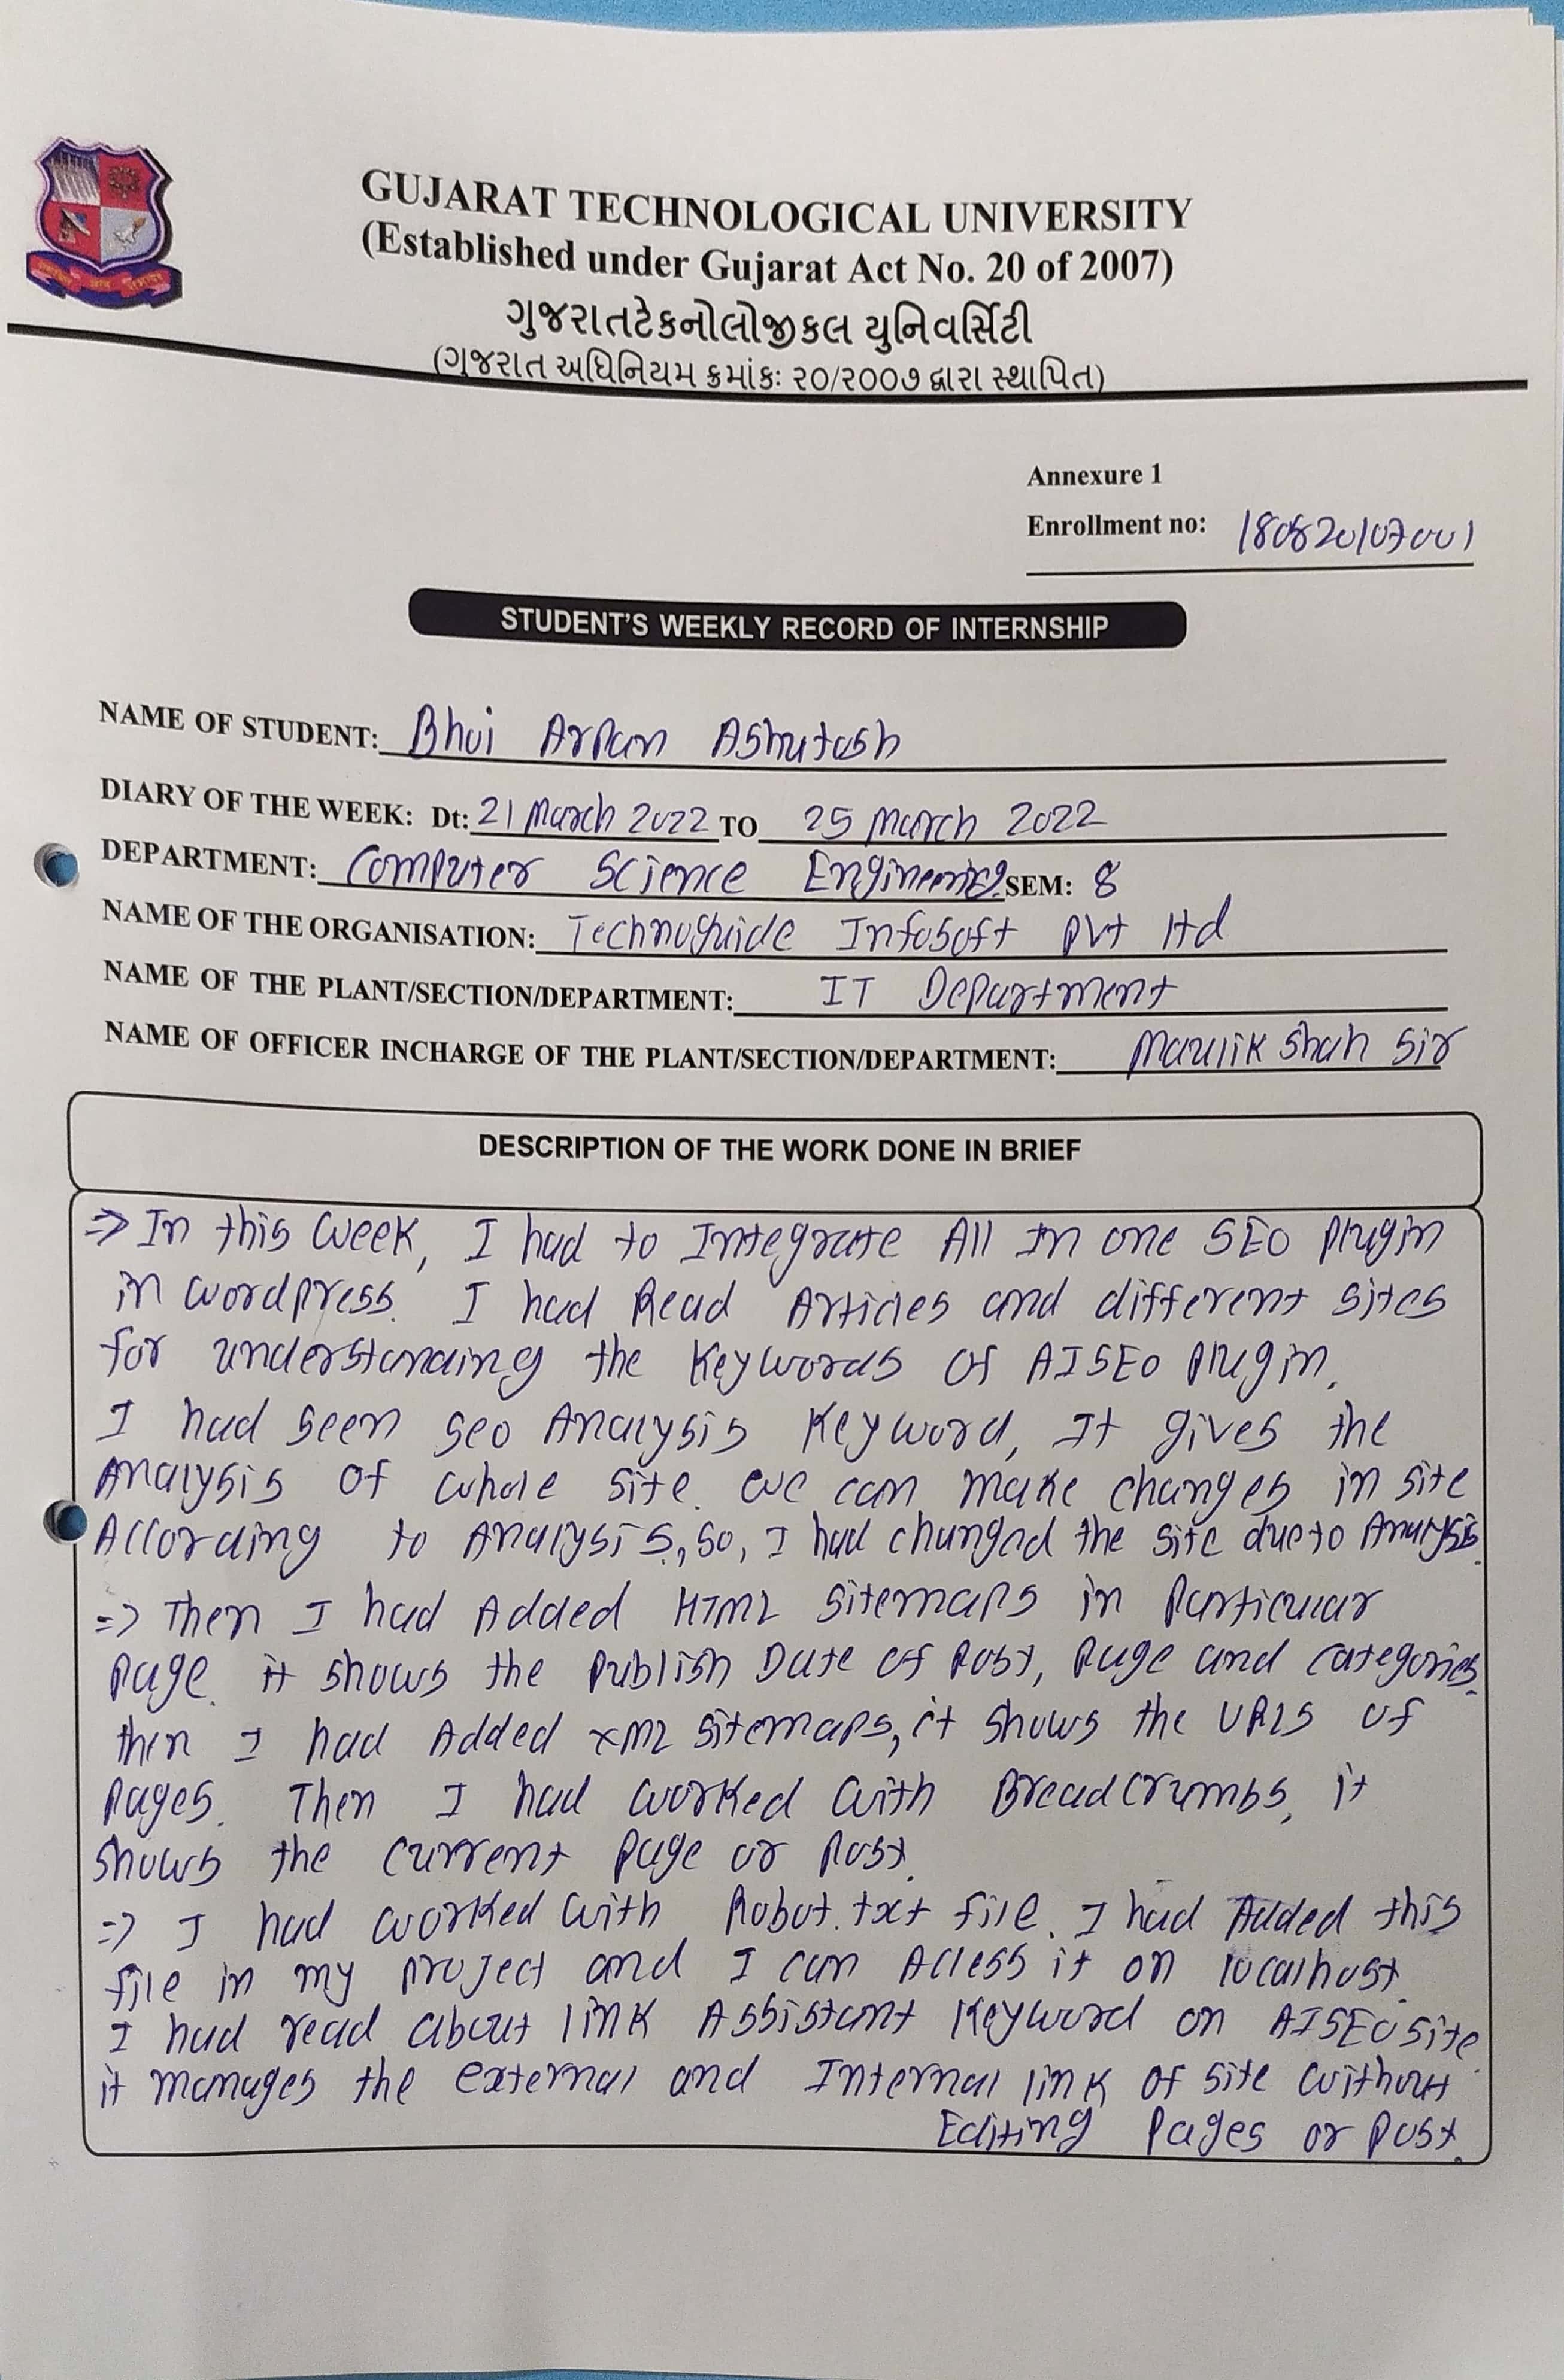 GUJARAT TECHNOLOGICAL UNIVERSITY
(Established under Gujarat Act No. 20 of 2007)
ગુજરાતટેકનોલોજીકલ યુનિવર્સિટી
(ગુજરાત અધિનિયમ ક્રમાંકઃ ૨૦/૨૦૦૭ દ્વારા સ્થાપિત)
Annexure 1
Enrollment no: 180820107001
STUDENT'S WEEKLY RECORD OF INTERNSHIP
NAME OF STUDENT: Bhoi Arpan Ashutosh
DIARY OF THE WEEK: Dt: 21 March 2022 TO 25 March 2022
DEPARTMENT: Computer Science Engineering SEM: 8
NAME OF THE ORGANISATION: Technoguide Infosoft Pvt ltd
NAME OF THE PLANT/SECTION/DEPARTMENT: IT Department
NAME OF OFFICER INCHARGE OF THE PLANT/SECTION/DEPARTMENT: Maulik Shah Sir
DESCRIPTION OF THE WORK DONE IN BRIEF
⇒ In this week, I had to Integrate All In one SEO Plugin
in wordpress. I had Read Articles and different sites
for understanding the Keywords of AISEO plugin.
I had seen seo Analysis Keyword, It gives the
Analysis of whole site. we can make changes in site
According to Analysis, so, I had changed the site due to Analysis.
=> Then I had Added HTML sitemaps in particular
page. it shows the publish Date of Post, Page and categories.
then I had Added XML sitemaps, it shows the URLs of
Pages. Then I had worked with Breadcrumbs, it
shows the current page or Post.
=> I had worked with Robot.txt file. I had Added this
file in my project and I can Access it on localhost.
I had read about link Assistant Keyword on AISEO site.
it manages the external and Internal link of site without
Editing Pages or Post.